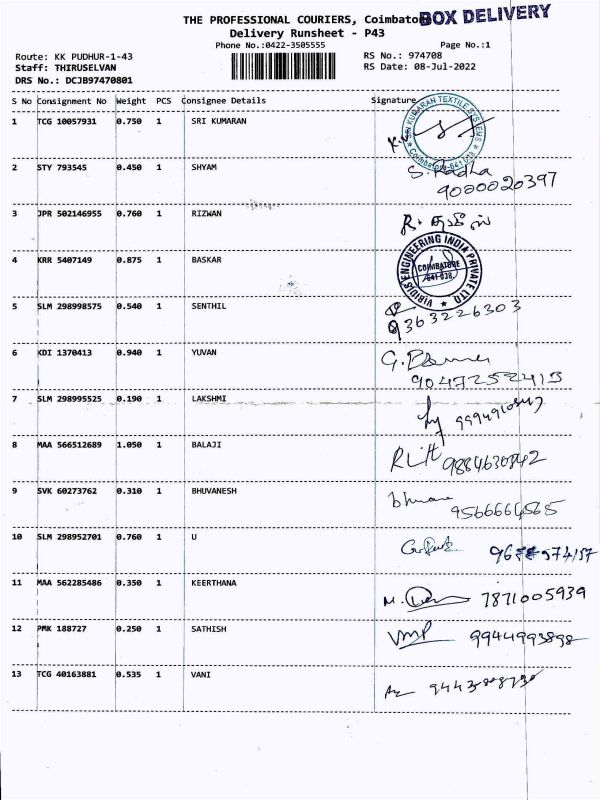 THE PROFESSIONAL COURIERS, Coimbatore
BOX DELIVERY
Delivery Runsheet - P43
Phone No.:0422-3505555
Page No.:1
Route: KK PUDHUR-1-43
RS No.: 974708
Staff: THIRUSELVAN
RS Date: 08-Jul-2022
DRS No.: DCJB97470801
S No Consignment No Weight PCS Consignee Details Signature
1 TCG 10057931 0.750 1 SRI KUMARAN
SRI KUMARAN TEXTILE SYSTEMS
Coimbatore-641 038
2 STY 793545 0.450 1 SHYAM
S. Radha
9000020397
3 JPR 502146955 0.760 1 RIZWAN
4 KRR 5407149 0.875 1 BASKAR
VIRIDIS ENGINEERING INDIA PRIVATE LTD
COIMBATORE
641 038
5 SLM 298998575 0.540 1 SENTHIL
9363226303
6 KDI 1370413 0.940 1 YUVAN
9047252413
7 SLM 298995525 0.190 1 LAKSHMI
8 MAA 566512689 1.050 1 BALAJI
9 SVK 60273762 0.310 1 BHUVANESH
9566664565
10 SLM 298952701 0.760 1 U
11 MAA 562285486 0.350 1 KEERTHANA
7871005939
12 PMK 188727 0.250 1 SATHISH
VMP 9944993898
13 TCG 40163881 0.535 1 VANI